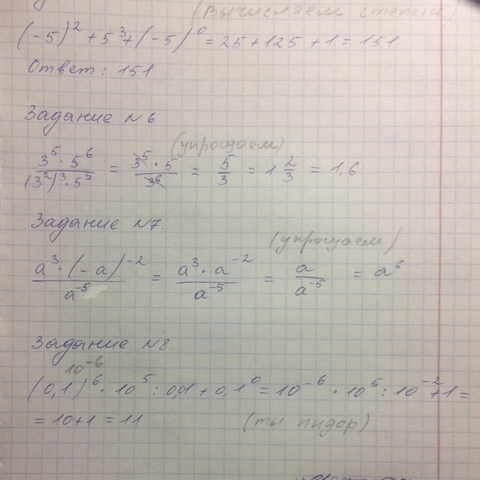 (Вычисляем степени)
(-5)² + 5³ + (-5)⁰ = 25 + 125 + 1 = 151
Ответ: 151
Задание №6
(упрощаем)
3⁵ · 5⁶ / (3²)³ · 5⁵ = 3⁵ · 5 / 3⁶ = 5/3 = 1 2/3 = 1,6
Задание №7.
(упрощаем)
a³ · (-a)⁻² / a⁻⁵ = a³ · a⁻² / a⁻⁵ = a / a⁻⁵ = a⁶
Задание №8
10⁻⁶
(0,1)⁶ · 10⁵ : 0,01 + 0,1⁰ = 10⁻⁶ · 10⁵ : 10⁻² + 1 =
= 10 + 1 = 11 (ты пидор)